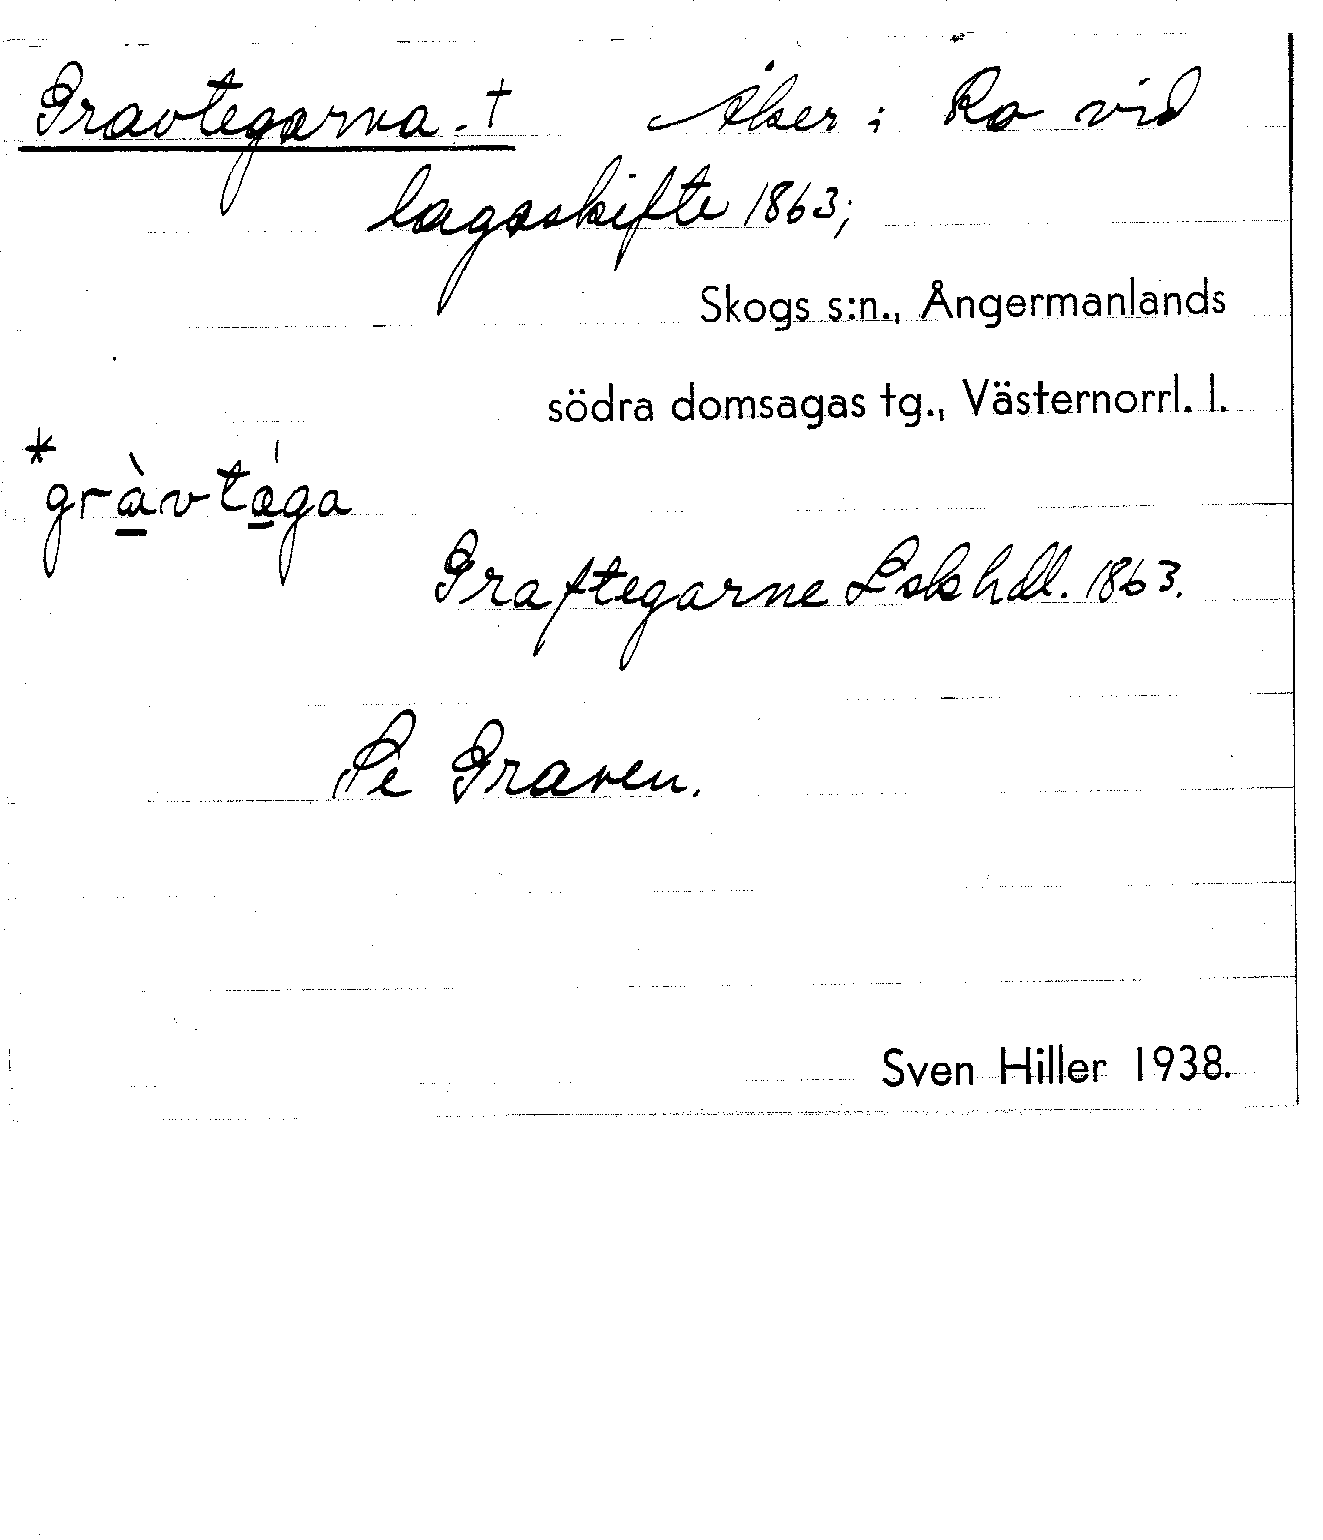 Gravtegarna. † Åker i Ro vid
lagaskifte 1863;
Skogs s:n., Ångermanlands
södra domsagas tg., Västernorrl. l.
*gràvtéga
Graftegarne Lskhdl. 1863.
Se Graven.
Sven Hiller 1938.